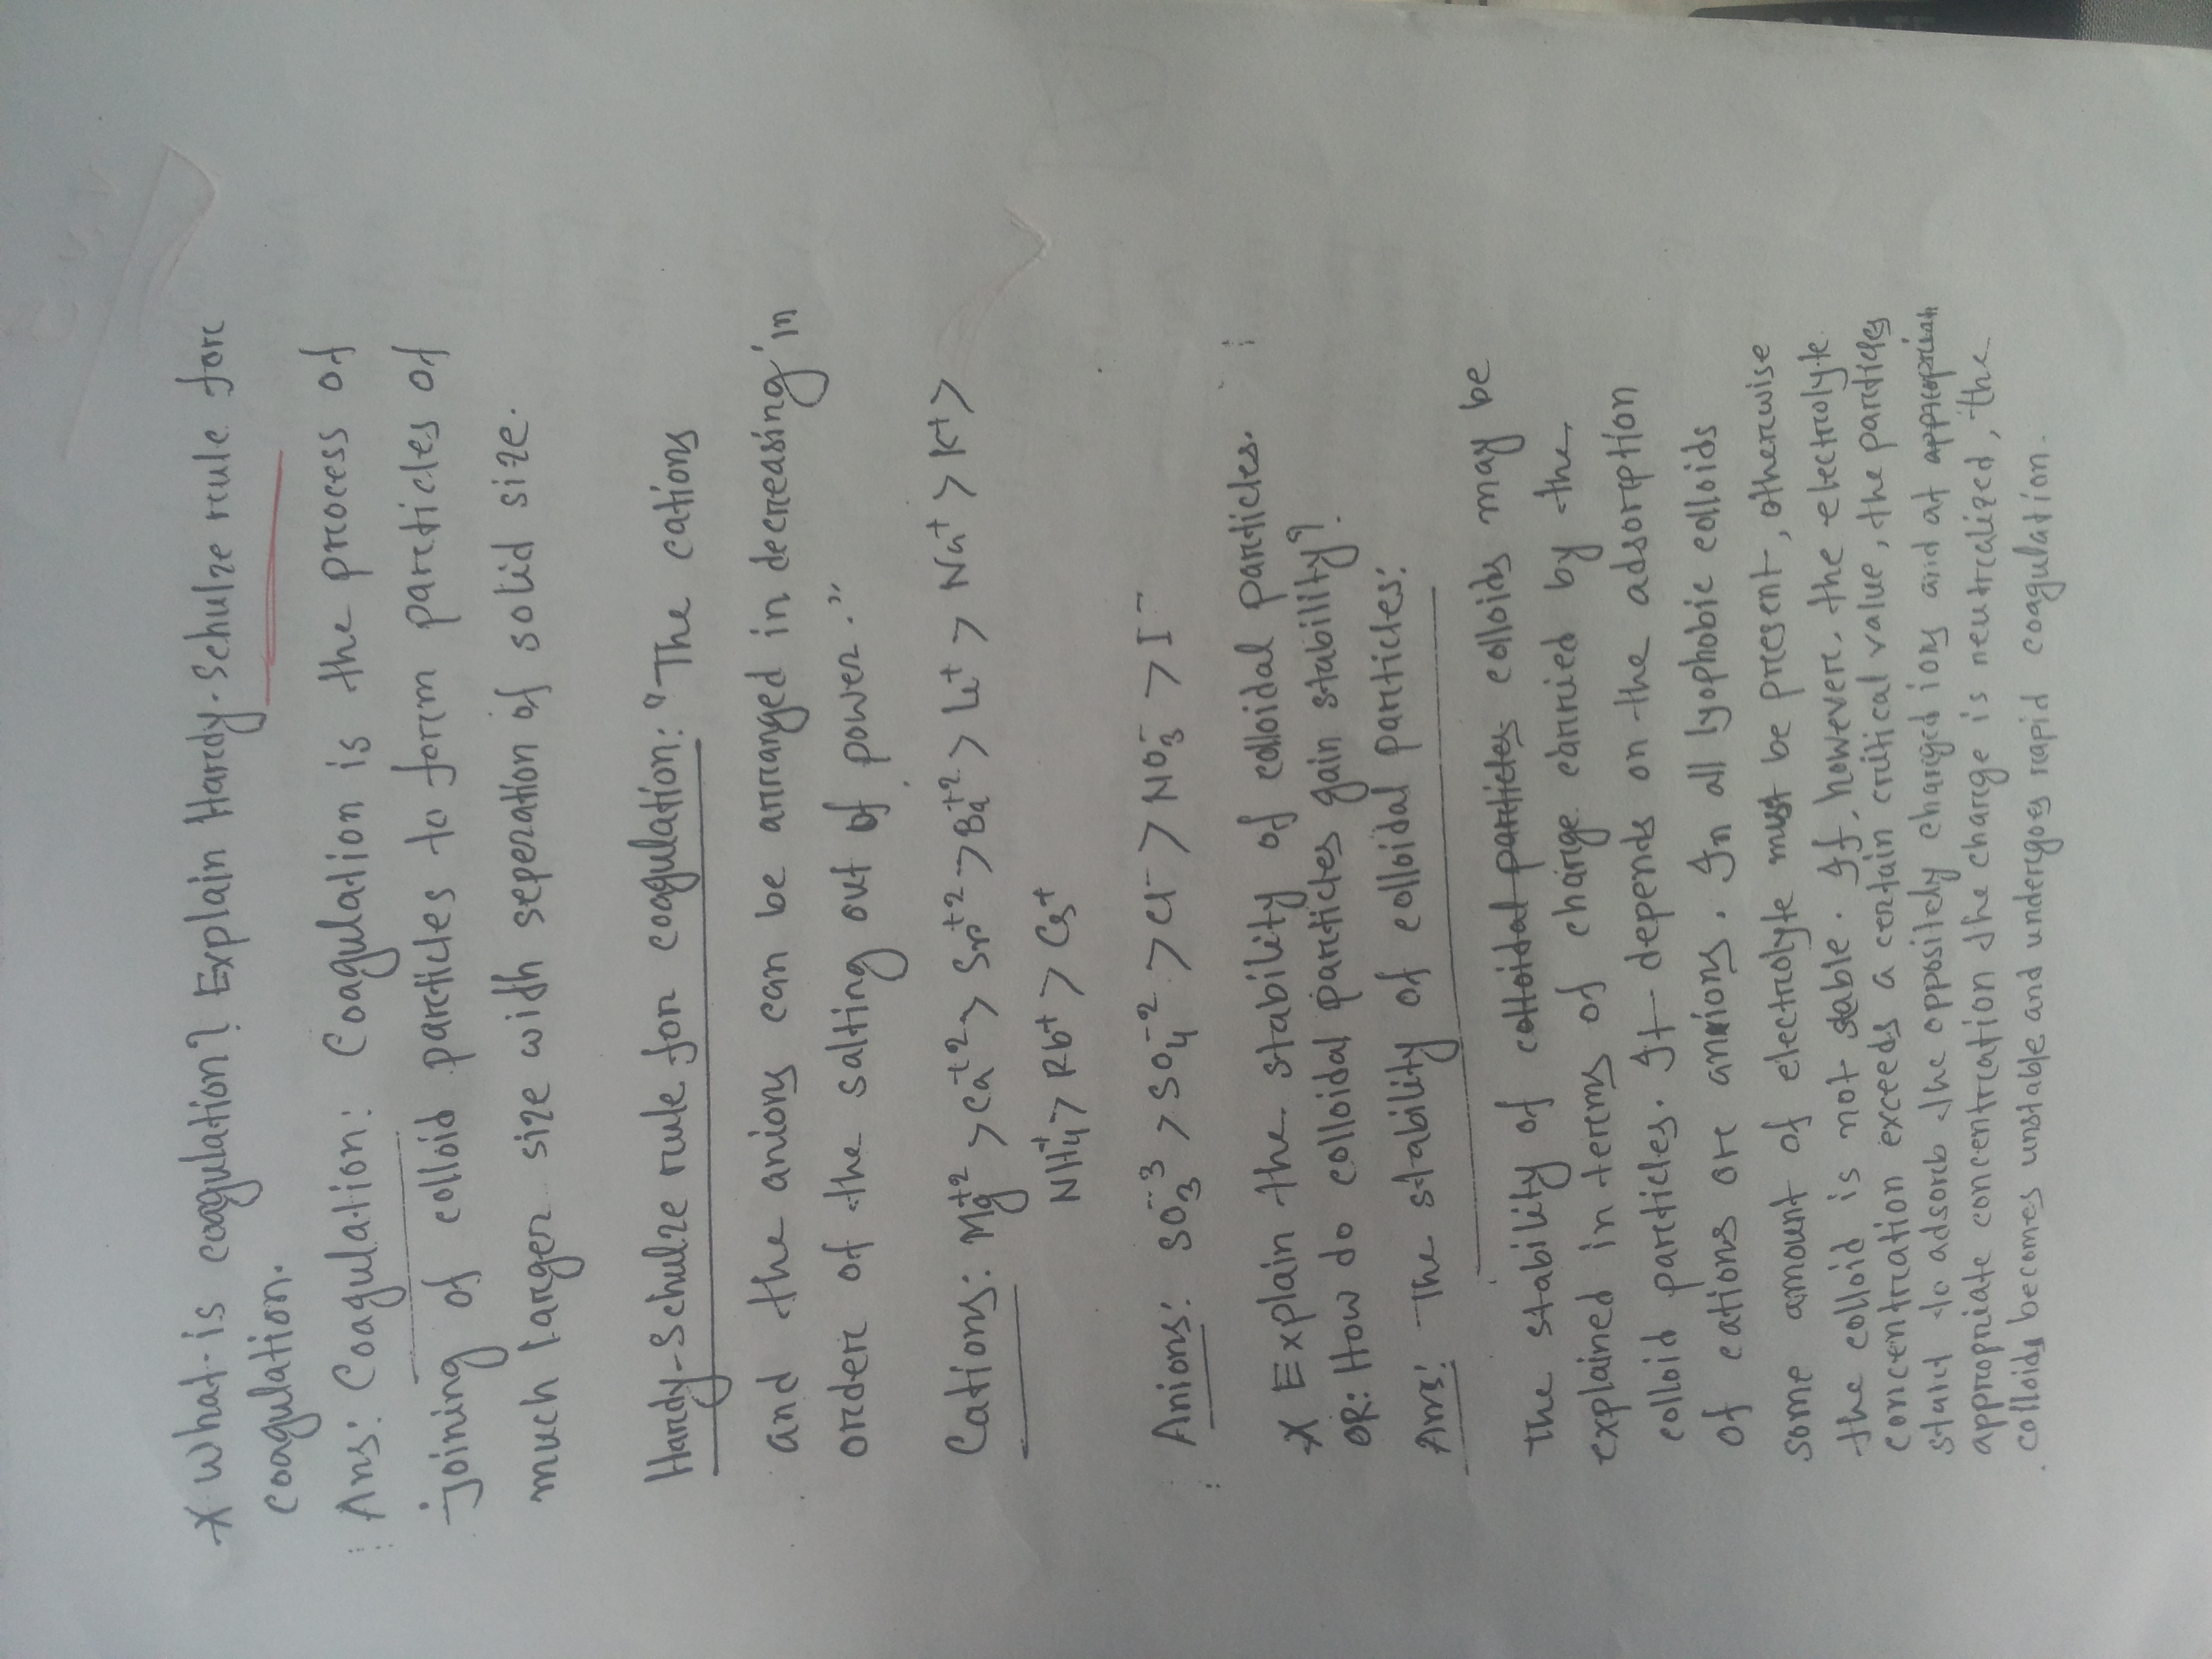 * What is coagulation? Explain Hardy-Schulze rule for
coagulation.
Ans: Coagulation: Coagulation is the process of
joining of colloid particles to form particles of
much larger size with seperation of solid size.
Hardy-Schulze rule for coagulation: "The cations
and the anions can be arranged in decreasing in
order of the salting out of power."
Cations: Mg+2 > Ca+2 > Sr+2 > Ba+2 > Li+ > Na+ > K+ >
NH4+ > Rb+ > Cs+
Anions: SO3-3 > SO4-2 > Cl- > NO3- > I-
* Explain the stability of colloidal particles.
OR: How do colloidal particles gain stability?
Ans: The stability of colloidal particles:
The stability of colloidal particles colloids may be
explained in terms of charge carried by the
colloid particles. It depends on the adsorption
of cations or anions. In all lyophobic colloids
some amount of electrolyte must be present, otherwise
the colloid is not stable. If, however, the electrolyte
concentration exceeds a certain critical value, the particles
start to adsorb the oppositely charged ions and at
appropriate concentration the charge is neutralized, the
colloids becomes unstable and undergoes rapid coagulation.